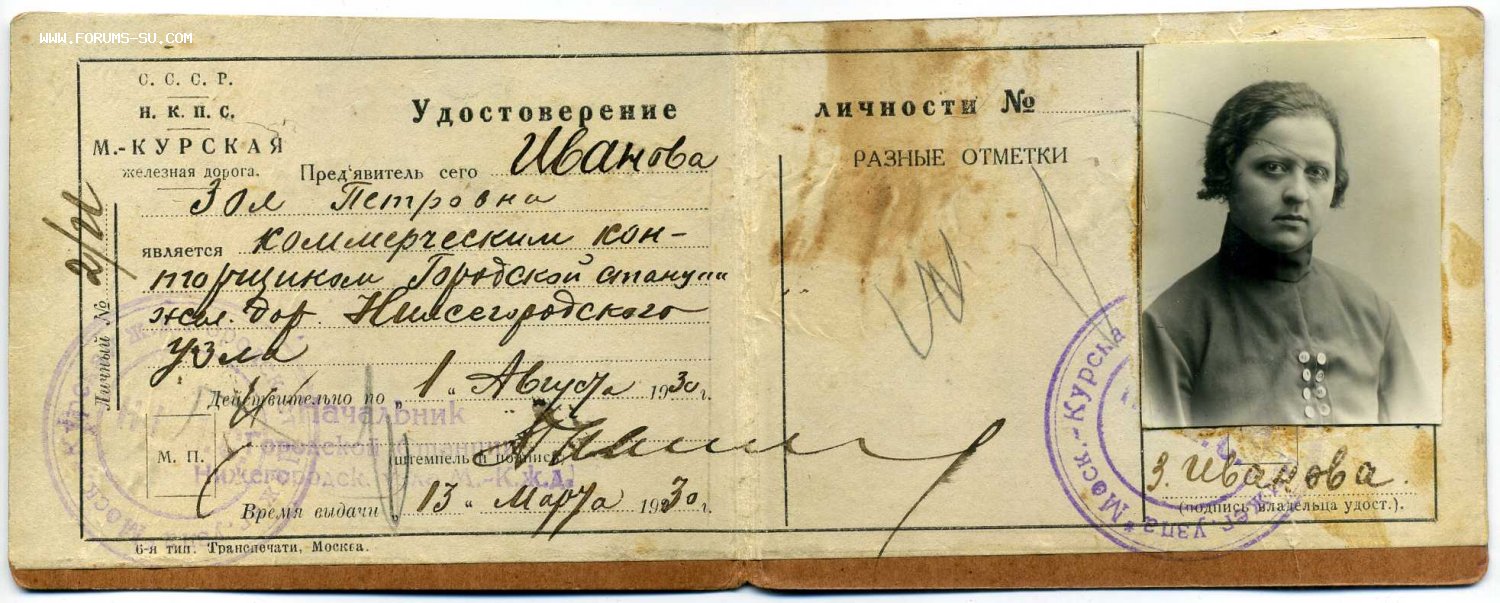 WWW.FORUMS-SU.COM
С. С. С. Р.
Н. К. П. С.
М.-КУРСКАЯ
железная дорога.
Личный № 21/21
Удостоверение личности №
Пред'явитель сего Иванова
Зоя Петровна
является коммерческим кон-
торщиком Городской станции
жел. дор. Нижегородского
узла
Действительно по „ 1 " Августа 1930 г.
Начальник
Городской станции
Нижегородск. узла М.-К.ж.д.
М. П.
(штемпель и подпись)
Время выдачи „ 13 " Марта 1930 г.
6-я тип. Транспечати, Москва.
РАЗНЫЕ ОТМЕТКИ
Моск.-Курска
узла
З. Иванова.
(подпись владельца удост.).